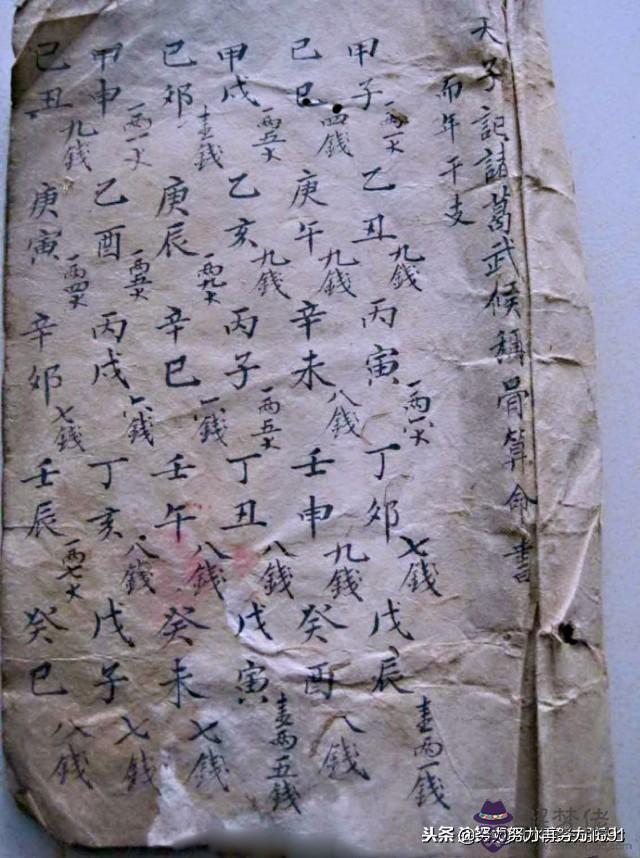 天子記諸葛武候稱骨算命書
而年干支
甲子 一兩 乙丑 九錢 丙寅 一兩 丁卯 七錢 戊辰 壹兩一錢
己巳 四錢 庚午 九錢 辛未 八錢 壬申 九錢 癸酉 八錢
甲戌 一兩五 乙亥 九錢 丙子 一兩五 丁丑 八錢 戊寅 壹兩五錢
己卯 壹錢 庚辰 一兩九 辛巳 錢 壬午 八錢 癸未 七錢
甲申 一兩一 乙酉 一兩五 丙戌 錢 丁亥 八錢 戊子 七錢
己丑 九錢 庚寅 一兩四 辛卯 七錢 壬辰 一兩七 癸巳 八錢
头条 @努力努力再努力